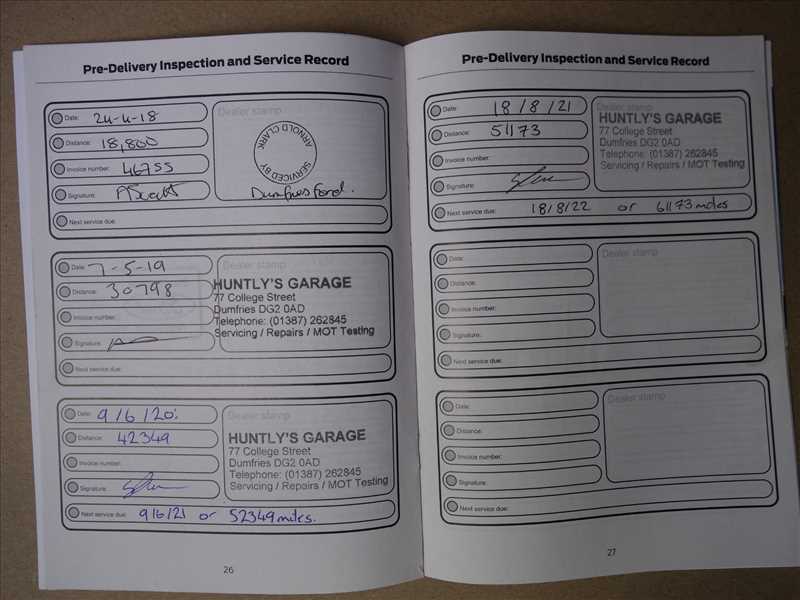 Pre-Delivery Inspection and Service Record
Date: 24-4-18
Distance: 18,800
Invoice number: 46755
Signature:
Next service due:
Dealer stamp
SERVICED BY
ARNOLD CLARK
Dumfries Ford.
Date: 7-5-19
Distance: 30798
Invoice number:
Signature:
Next service due:
Dealer stamp
HUNTLY'S GARAGE
77 College Street
Dumfries DG2 0AD
Telephone: (01387) 262845
Servicing / Repairs / MOT Testing
Date: 9/6/20
Distance: 42349
Invoice number:
Signature:
Next service due: 9/6/21 or 52349 miles.
Dealer stamp
HUNTLY'S GARAGE
77 College Street
Dumfries DG2 0AD
Telephone: (01387) 262845
Servicing / Repairs / MOT Testing
26
Pre-Delivery Inspection and Service Record
Date: 18/8/21
Distance: 51173
Invoice number:
Signature:
Next service due: 18/8/22 or 61173 miles
Dealer stamp
HUNTLY'S GARAGE
77 College Street
Dumfries DG2 0AD
Telephone: (01387) 262845
Servicing / Repairs / MOT Testing
Date:
Distance:
Invoice number:
Signature:
Next service due:
Dealer stamp
Date:
Distance:
Invoice number:
Signature:
Next service due:
Dealer stamp
27